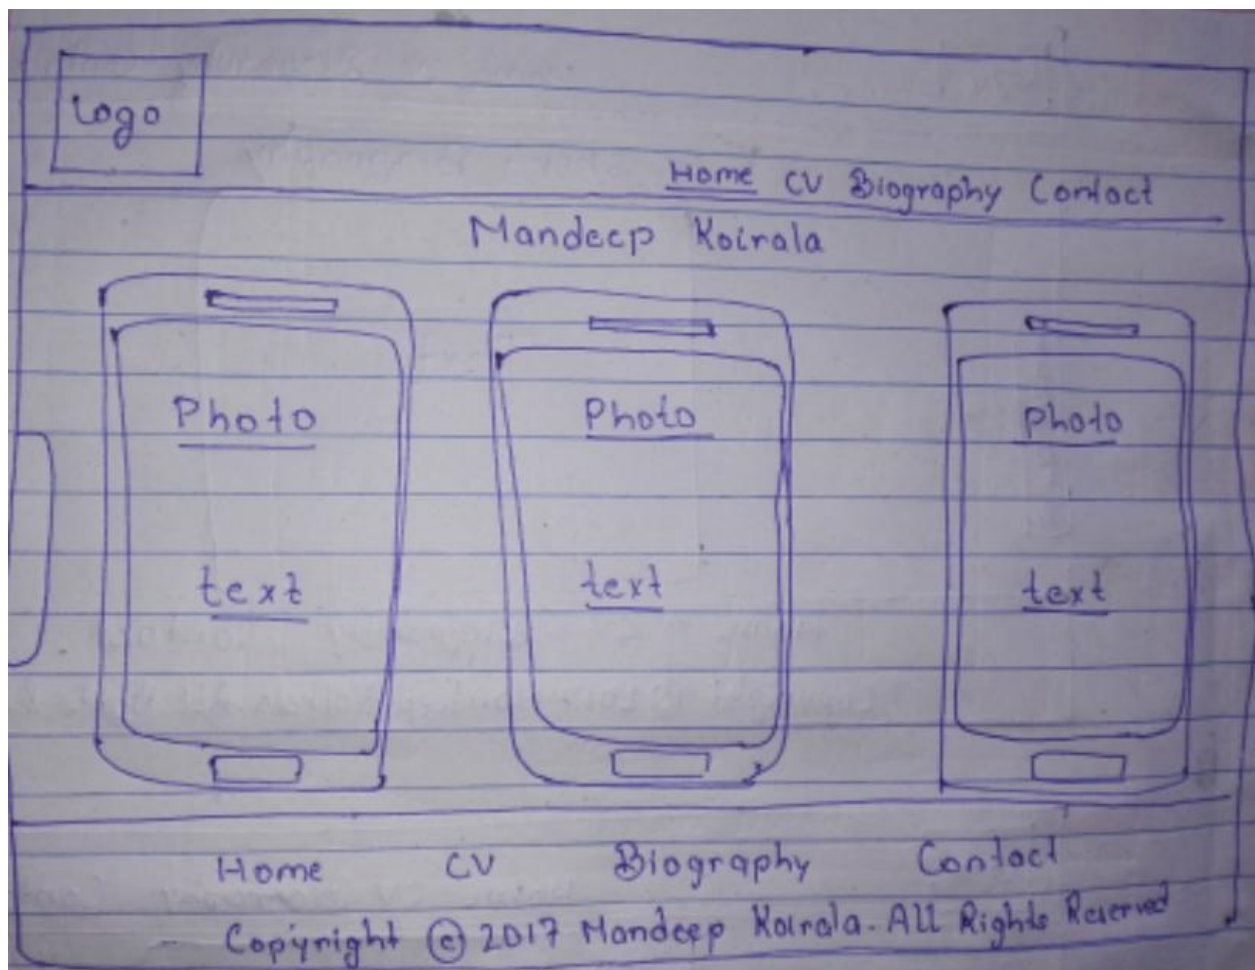 Logo
Home CV Biography Contact
Mandeep Koirala
Photo Photo Photo
text text text
Home CV Biography Contact
Copyright © 2017 Mandeep Koirala. All Rights Reserved